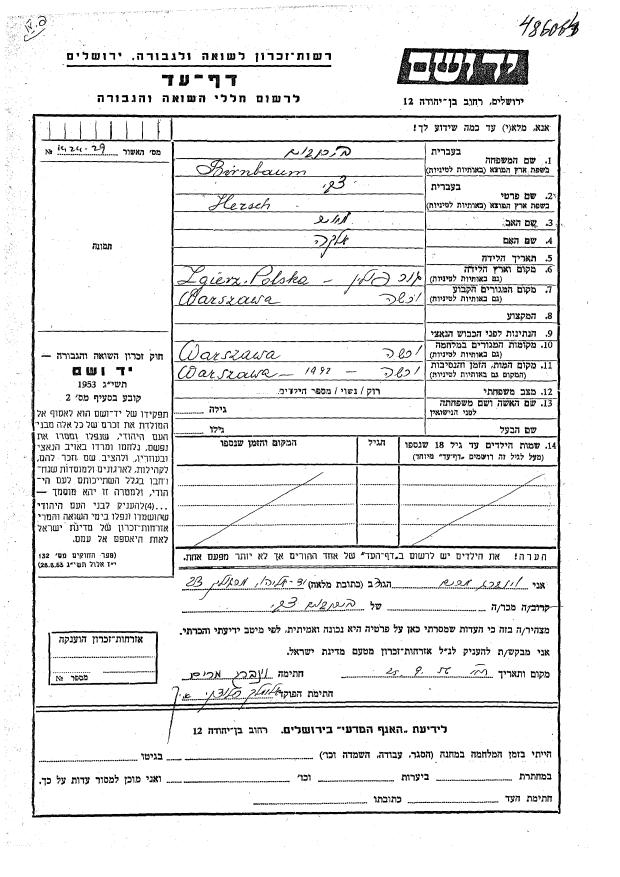 486064
רשות־זכרון לשואה ולגבורה. ירושלים
יד ושם
דף־עד
לרשום חללי השואה והגבורה
ירושלים, רחוב בן־יהודה 12
אנא, מלא(י) עד כמה שידוע לך!
מס׳ האשור №
תמונה
1. שם המשפחה
בעברית
בשפת ארץ המוצא (באותיות לטיניות)
בירנבוים
Birnbaum
2. שם פרטי
בעברית
בשפת ארץ המוצא (באותיות לטיניות)
צבי
Hersch
3. שם האב
4. שם האם
5. תאריך הלידה
6. מקום וארץ הלידה
(גם באותיות לטיניות)
Zgierz. Polska –
7. מקום המגורים הקבוע
(גם באותיות לטיניות)
Warszawa ורשה
8. המקצוע
9. הנתינות לפני הכבוש הנאצי
10. מקומות המגורים במלחמה
(גם באותיות לטיניות)
Warszawa ורשה
11. מקום המות, הזמן והנסיבות
(המקום גם באותיות לטיניות)
Warszawa – 1942 – ורשה
12. מצב משפחתי
רוק / נשוי / מספר הילדים
13. שם האשה ושם משפחתה
לפני הנישואין
גילה
שם הבעל
גילו
14. שמות הילדים עד גיל 18 שנספו
(מעל לגיל זה רושמים „דף־עד״ מיוחד)
הגיל
המקום והזמן שנספו
חוק זכרון השואה והגבורה —
יד ושם
תשי״ג 1953
קובע בסעיף מס׳ 2
תפקידו של יד־ושם הוא לאסוף אל
המולדת את זכרם של כל אלה מבני
העם היהודי, שנפלו ומסרו את
נפשם, נלחמו ומרדו באויב הנאצי
ובעוזריו, ולהציב שם וזכר להם,
לקהילות, לארגונים ולמוסדות שנח־
רבו בגלל השתייכותם לעם היה־
הודי, ולמטרה זו יהא מוסמך —
...(4)להעניק לבני העם היהודי
שהושמדו ונפלו בימי השואה והמרי
אזרחות־זכרון של מדינת ישראל
לאות היאספם אל עמם.
(ספר החוקים מס׳ 132
י״ז אלול תשי״ג 28.8.53)
הערה! את הילדים יש לרשום ב„דף־העד״ של אחד ההורים אך לא יותר מפעם אחת.
אני הגר/ב (כתובת מלאה) יד־אליהו, 23
קרוב/ה מכר/ה של בירנבוים צבי
מצהיר/ה בזה כי העדות שמסרתי כאן על פרטיה היא נכונה ואמיתית, לפי מיטב ידיעתי והכרתי.
אני מבקש/ת להעניק לנ״ל אזרחות־זכרון מטעם מדינת ישראל.
מקום ותאריך חתימה
חתימת הפוקד
אזרחות־זכרון הוענקה
מספר №
לידיעת „האגף המדעי״ בירושלים. רחוב בן־יהודה 12
הייתי בזמן המלחמה במחנה (הסגר, עבודה, השמדה וכו׳) בגיטו
במחתרת ביערות וכו׳ ואני מוכן למסור עדות על כך.
חתימת העד כתובתו